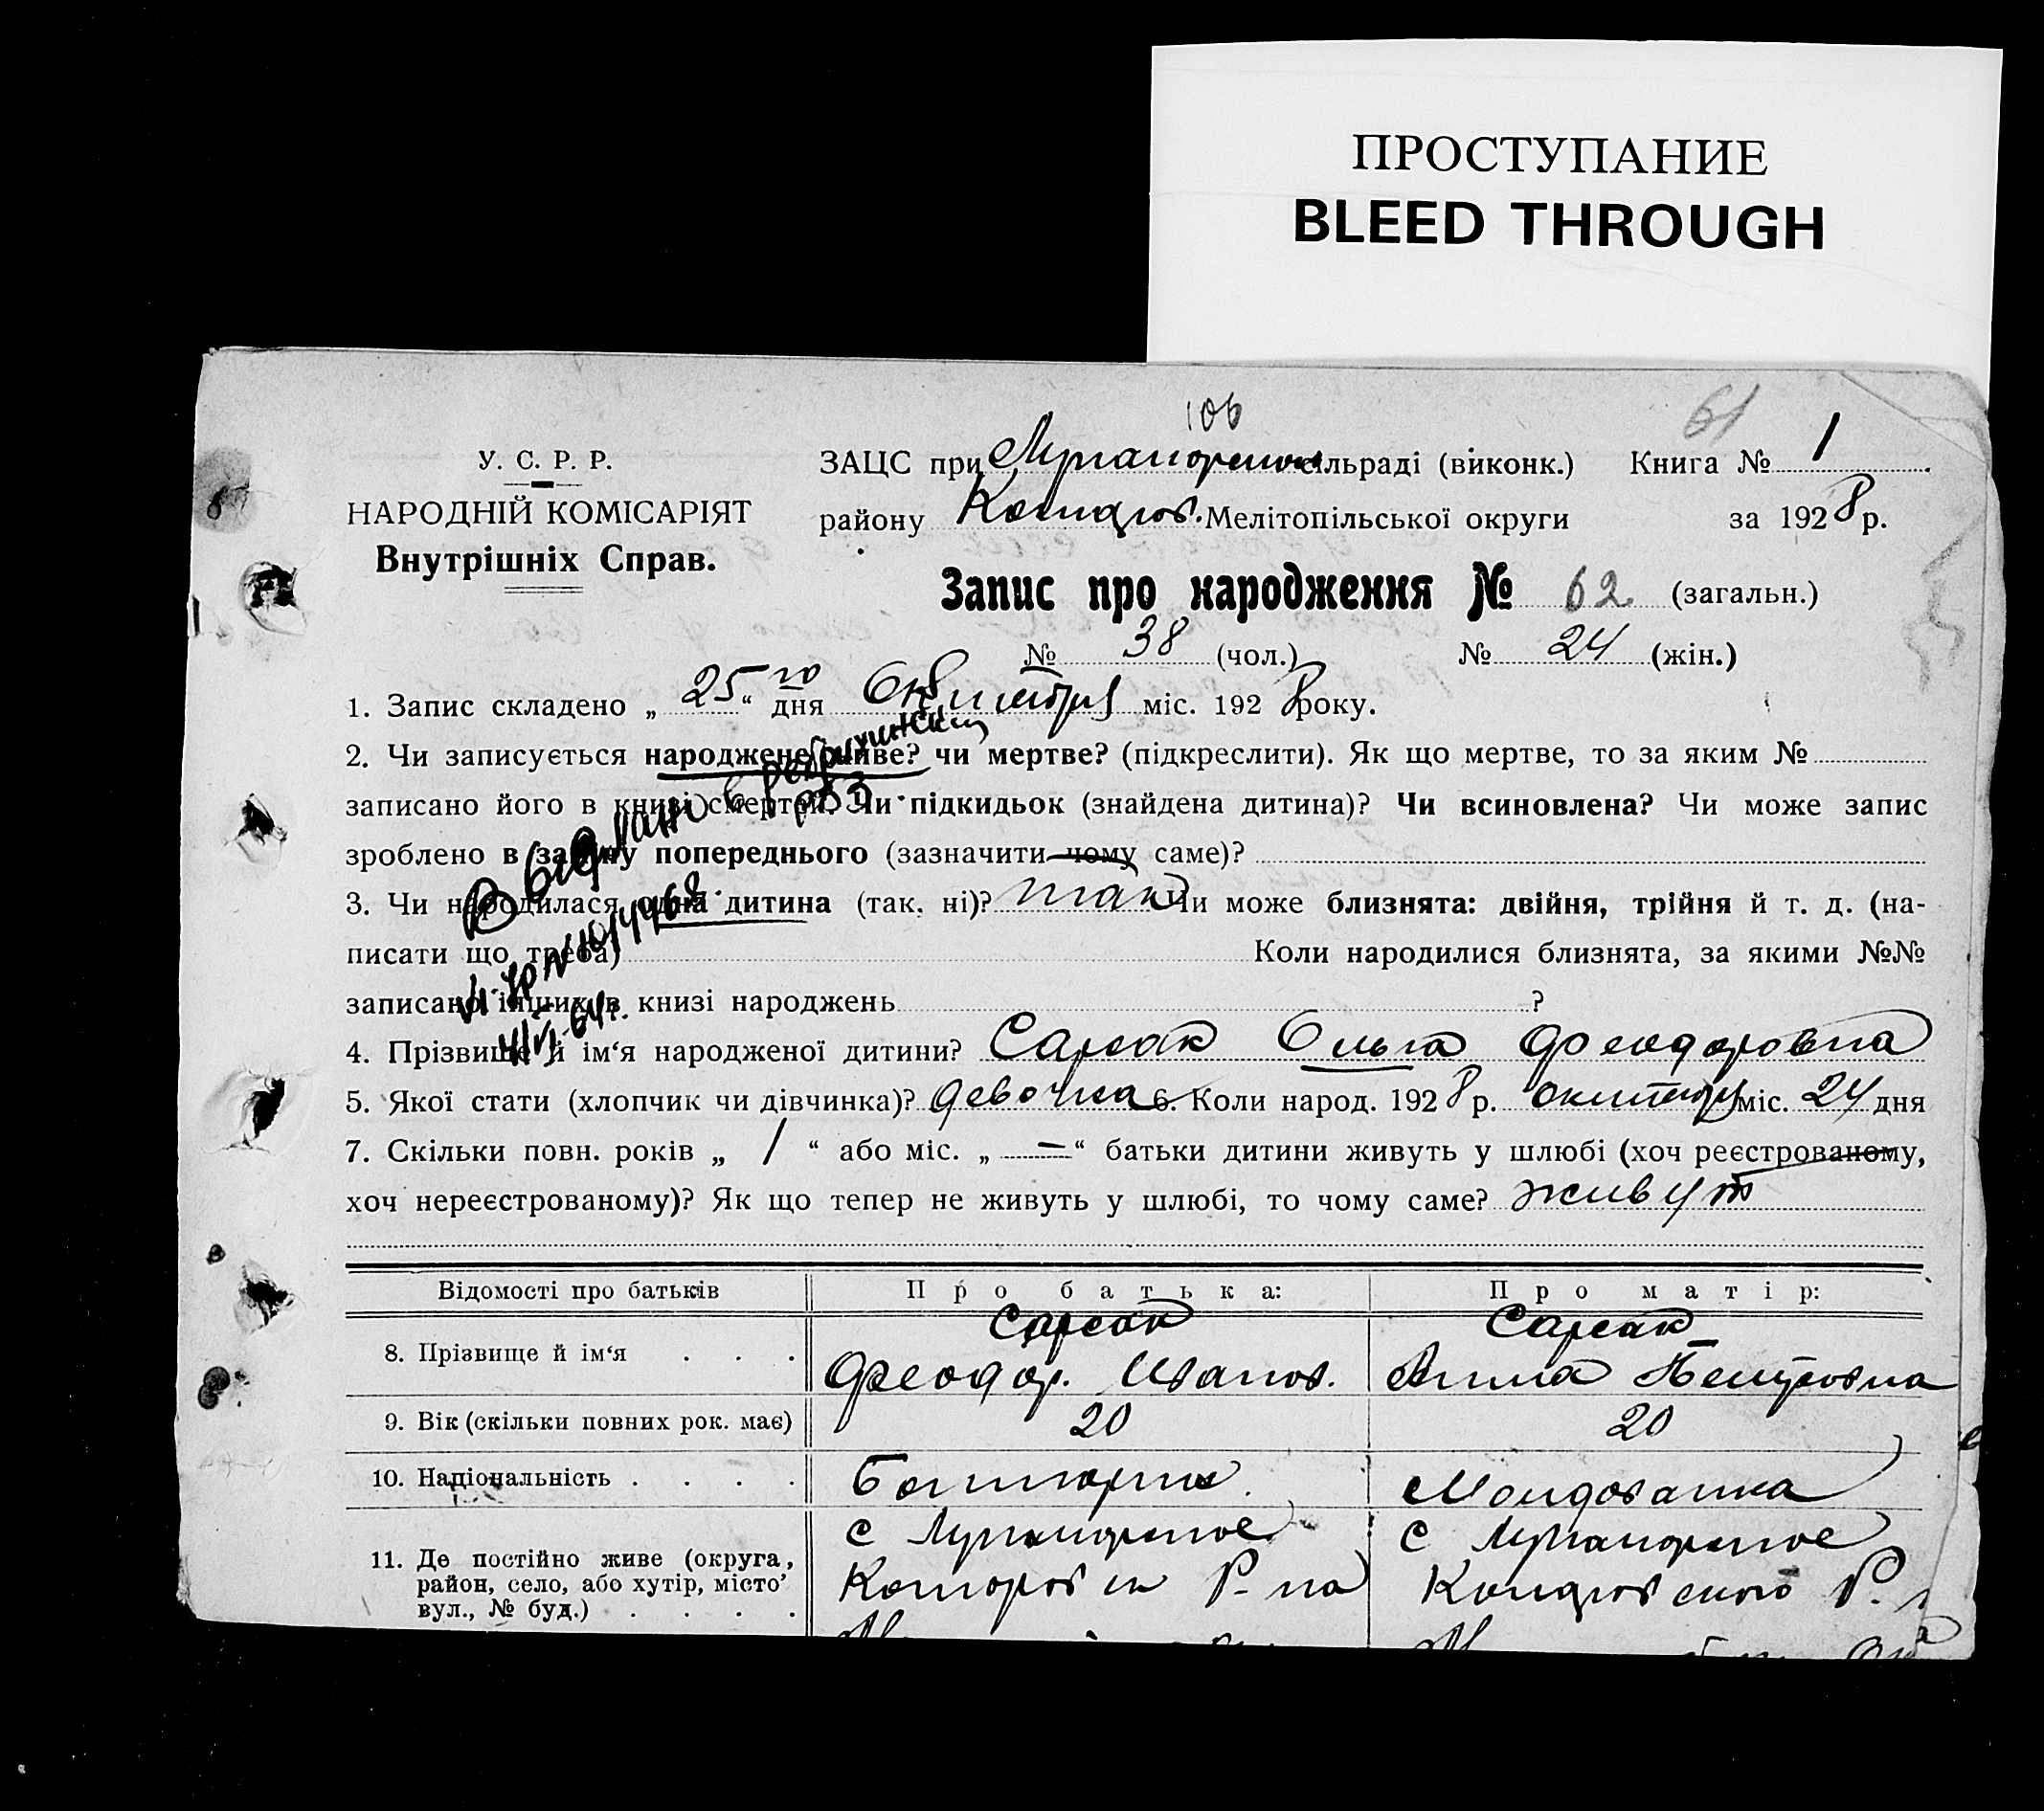 ПРОСТУПАНИЕ
BLEED THROUGH
106
61
У. С. Р. Р.
НАРОДНІЙ КОМІСАРІЯТ
Внутрішніх Справ.
ЗАЦС при сільраді (виконк.) Книга № 1
району Мелітопільської округи за 1928 р.
Запис про народження № 62 (загальн.)
№ 38 (чол.) № 24 (жін.)
1. Запис складено „25го“ дня Октября міс. 1928 року.
2. Чи записується народжене живе? чи мертве? (підкреслити). Як що мертве, то за яким №
записано його в книзі смертей. Чи підкидьок (знайдена дитина)? Чи всиновлена? Чи може запис
зроблено в заміну попереднього (зазначити чому саме)?
3. Чи народилася одна дитина (так, ні)? так Чи може близнята: двійня, трійня й т. д. (на-
писати що треба) Коли народилися близнята, за якими №№
записано інших в книзі народжень ?
4. Прізвище й ім‘я народженої дитини? Сарсак Ольга Феодоровна
5. Якої стати (хлопчик чи дівчинка)? девочка 6. Коли народ. 1928 р. октября міс. 24 дня
7. Скільки повн. років „ 1 “ або міс. „ — “ батьки дитини живуть у шлюбі (хоч реєстрованому,
хоч нереєстрованому)? Як що тепер не живуть у шлюбі, то чому саме? живут
Відомості про батьків Про батька: Про матір:
8. Прізвище й ім‘я . . . Сарсак Феодор. Иванов. Сарсак Анна Петровна
9. Вік (скільки повних рок. має) 20 20
10. Національність . . . . Болгарин. Молдованка
11. Де постійно живе (округа, с с
район, село, або хутір, місто’ Р-на Р.
вул., № буд.) . . . .